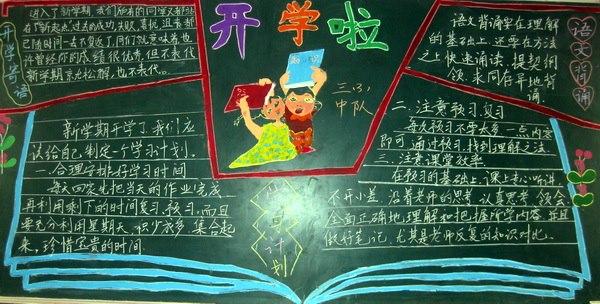 开学啦
三(3)
中队
开学寄语
进入了新学期,我们所有的同学又都站
在"新起点"过去的成功、失败、喜悦、沮丧都
已随时间一去不复返了。同们这意味着也
许曾经你的成绩很优秀,但不代表
新学期
松解,也不代表。
语文背诵
语文背诵要在理解
的基础上,还要在方法
之上快速诵读、提契纲
领、求同存异地背
诵。
新学期开学了,我们应
认给自己制定一个学习计划。
一、合理安排好学习时间
每天回家先把当天的作业完成
再利用剩下的时间复习、预习,而且
要充分利用星期天,积少成多,集合起
来,珍惜宝贵的时间。
学习计划
二、注意预习复习
每次预习不学太多,一点内容
即可,通过预习,找到理解之法
三、注意课堂效率
在预习的基础上,课上专心听讲
不开小差,沿着老师的思考,认真思考,领会,
全面正确地理解和把握所学内容,并且
做好笔记,尤其是老师反复的知识对比。